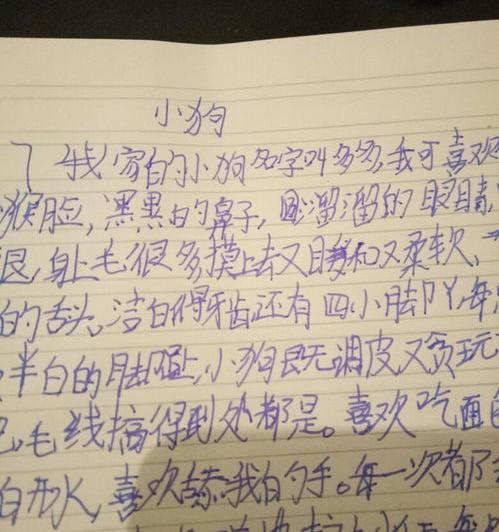 小狗
我家的小狗名字叫多多,我可喜欢
猴脸,黑黑的鼻子,圆溜溜的眼睛,
身上毛很多摸上去又暖和又柔软,
的舌头,洁白得牙齿还有四小脚丫,每
半白的脚 小狗既无调皮又贪玩
毛线搞得到处都是。喜欢吃面
喜欢舔我的手。每一次都